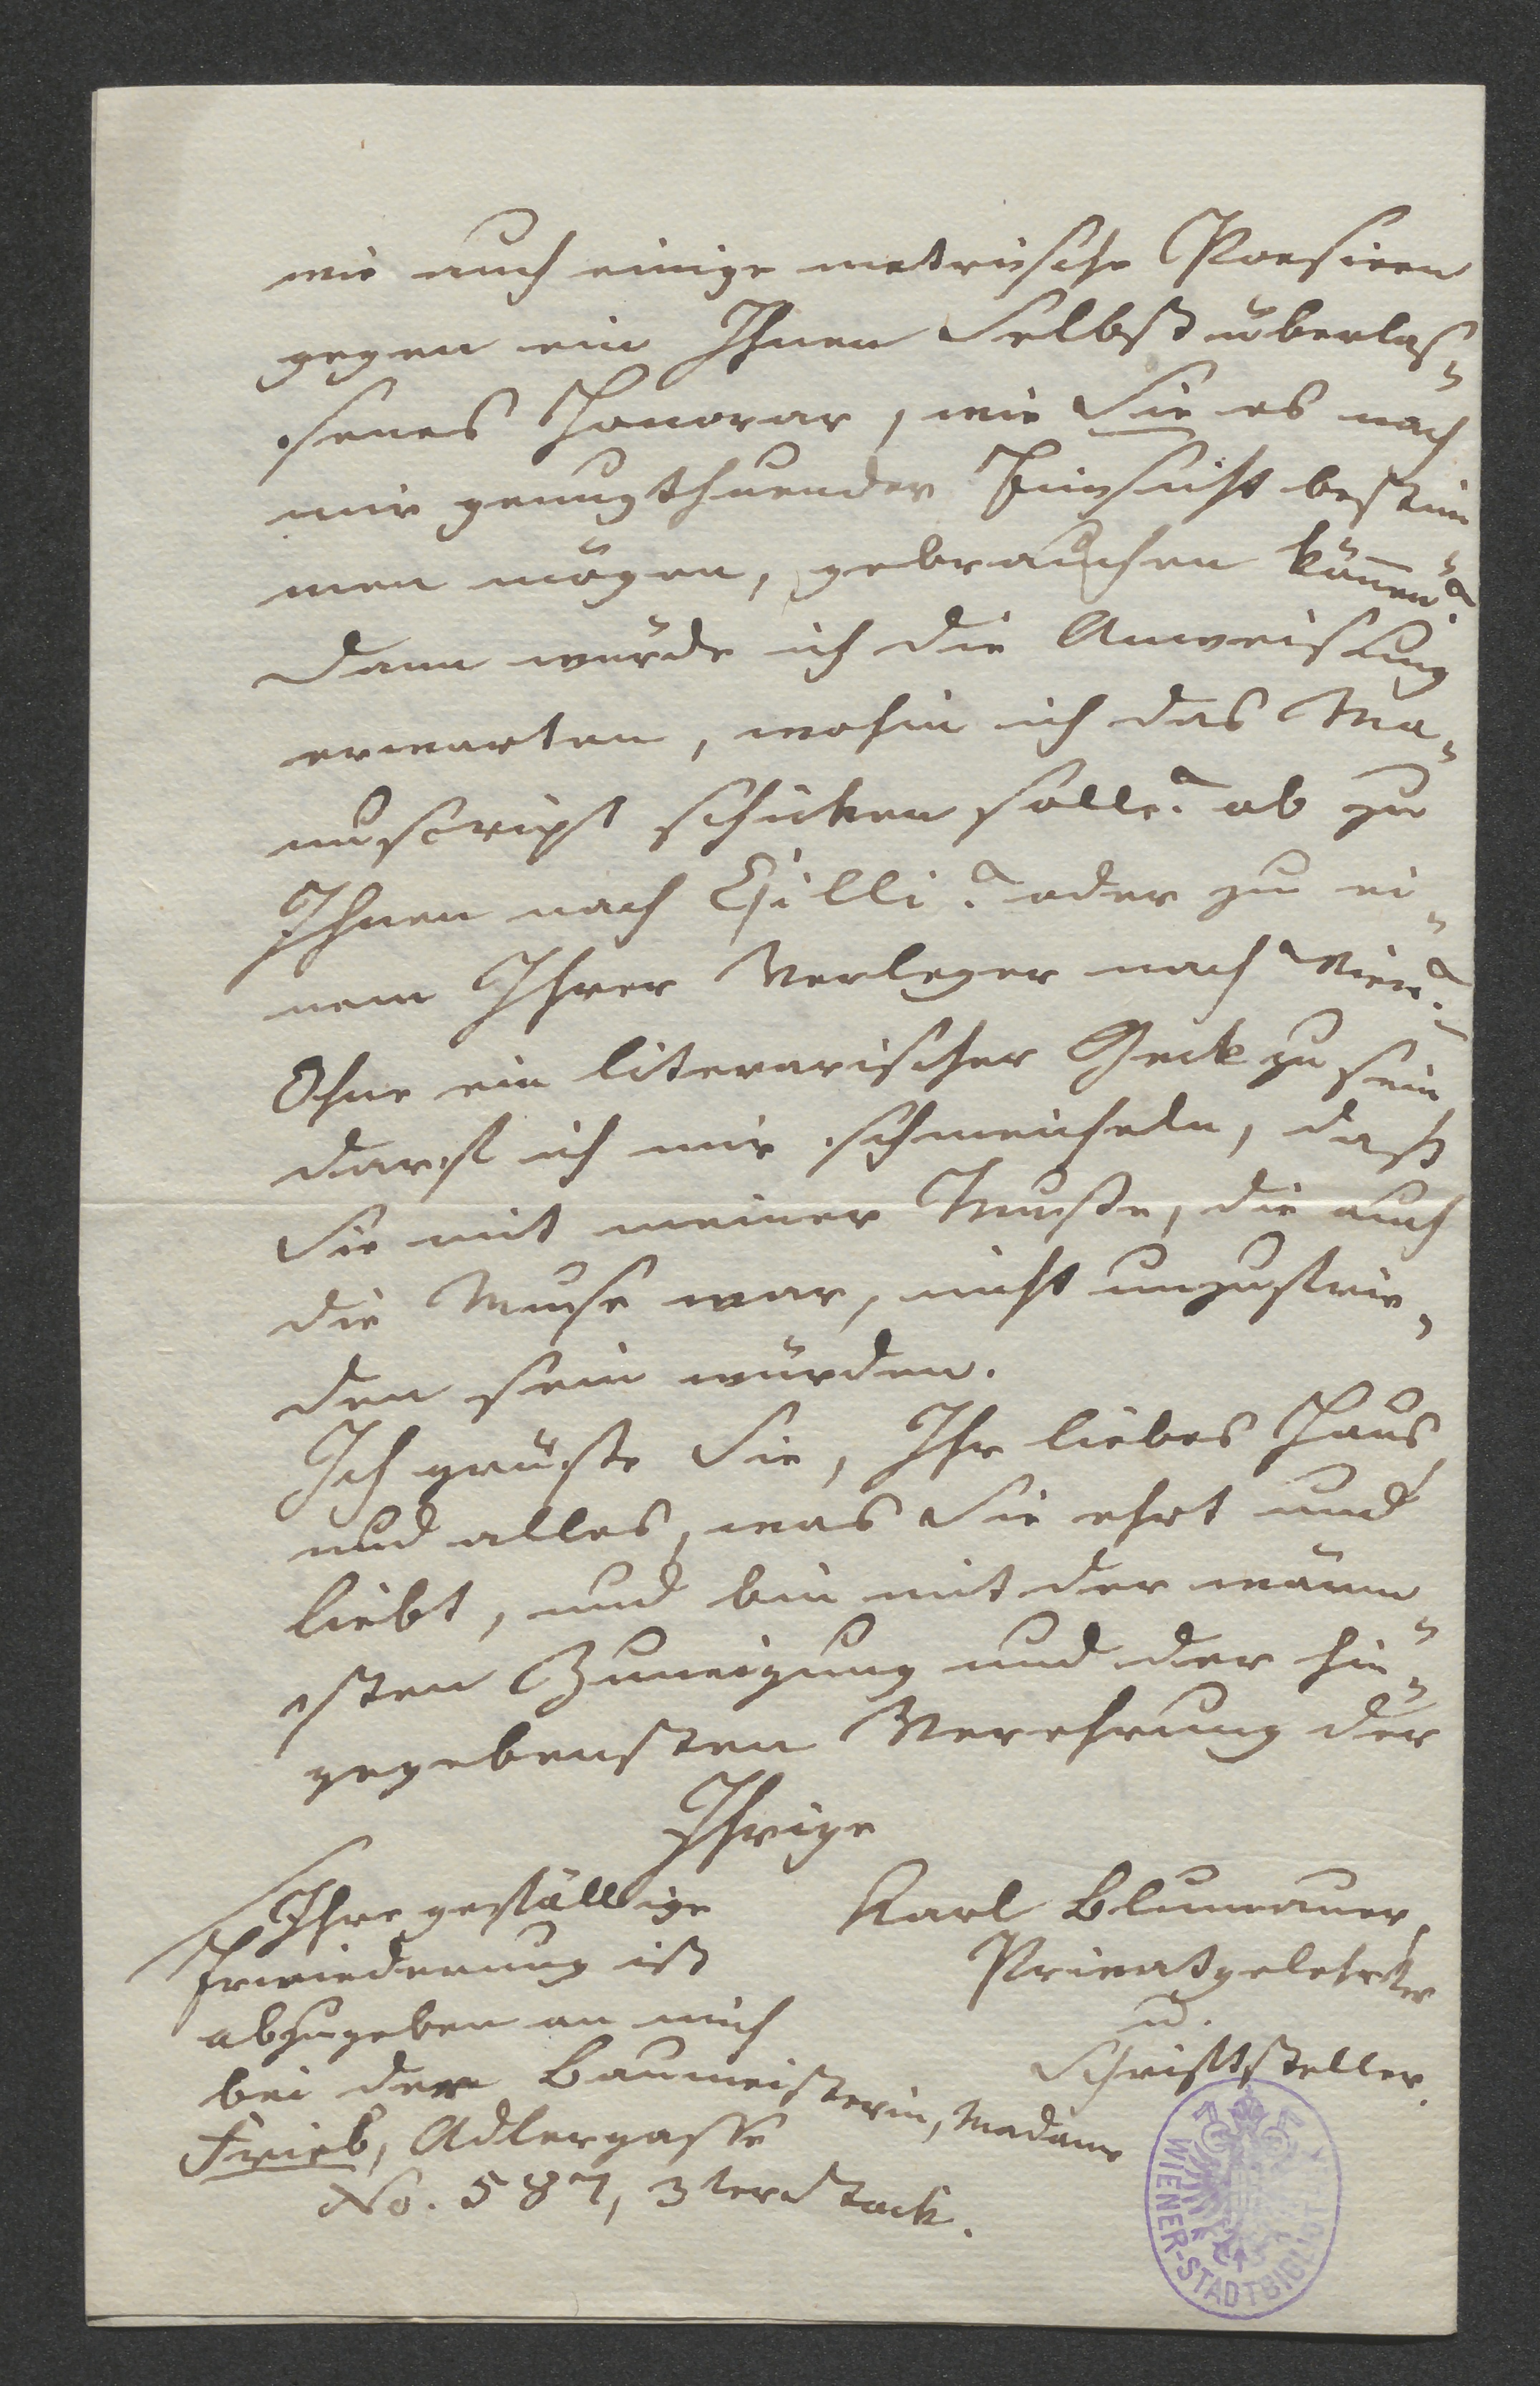 wie auch einige metrische Poesieen
gegen ein Ihnen Selbst überlas-
senes Honorar, wie Sie es nach
mir genugthuender Einsicht bestim-
men mögen, gebrauchen können?
Dann würde ich die Anweisung
erwarten, wohin ich das Ma-
nuscript schicken solle? ob zu
Ihnen nach Cilli? oder zu ei-
nem Ihrer Verleger nach Wien?
Ohne ein literarischer Geck zu sein
darf ich mir schmeicheln, daß
Sie mit meiner Muße, die auch
die Muse war, nicht unzufrie-
den sein würden.
Ich grüße Sie, Ihr liebes Haus,
und alles, was Sie ehrt und
liebt, und bin mit der wärm-
sten Zuneigung und der hin-
gegebensten Verehrung der
Ihrige
Karl Blumauer,
Privatgelehrter
u.
Schriftsteller.
Ihre gefällige
Erwiederung ist
abzugeben an mich
bei der Baumeisterin, Madame
Frieb, Adlergasse
No. 587, 3ter Stock.
WIENER-STADTBIBLIOTHEK